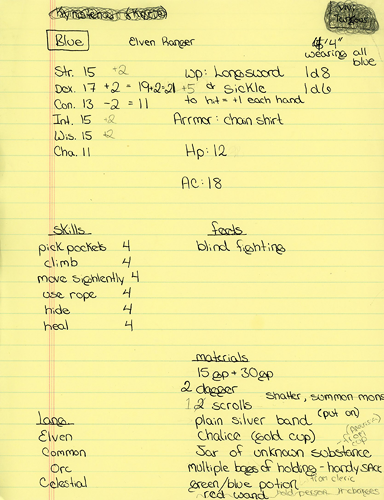 Blue
Elven Ranger
4'4"
wearing all blue
Str. 15 +2
Dex. 17 +2 = 19+2=21 +5
Con. 13 -2 = 11
Int. 15 +2
Wis. 15 +2
Cha. 11
wp: Longsword 1d8
& sickle 1d6
to hit = +1 each hand
Arrmor: chain shirt
Hp: 12
AC: 18
skills
pick pockets 4
climb 4
move sighlently 4
use rope 4
hide 4
heal 4
feats
blind fighting
materials
15 gp + 30gp
2 dagger
2 scrolls shatter, summon mons
plain silver band (put on)
Chalice (gold cup)
Jar of unknown substance
multiple bags of holding - handy sack
green/blue potion from cleric
red wand hold person
Lang
Elven
Common
Orc
Celestial